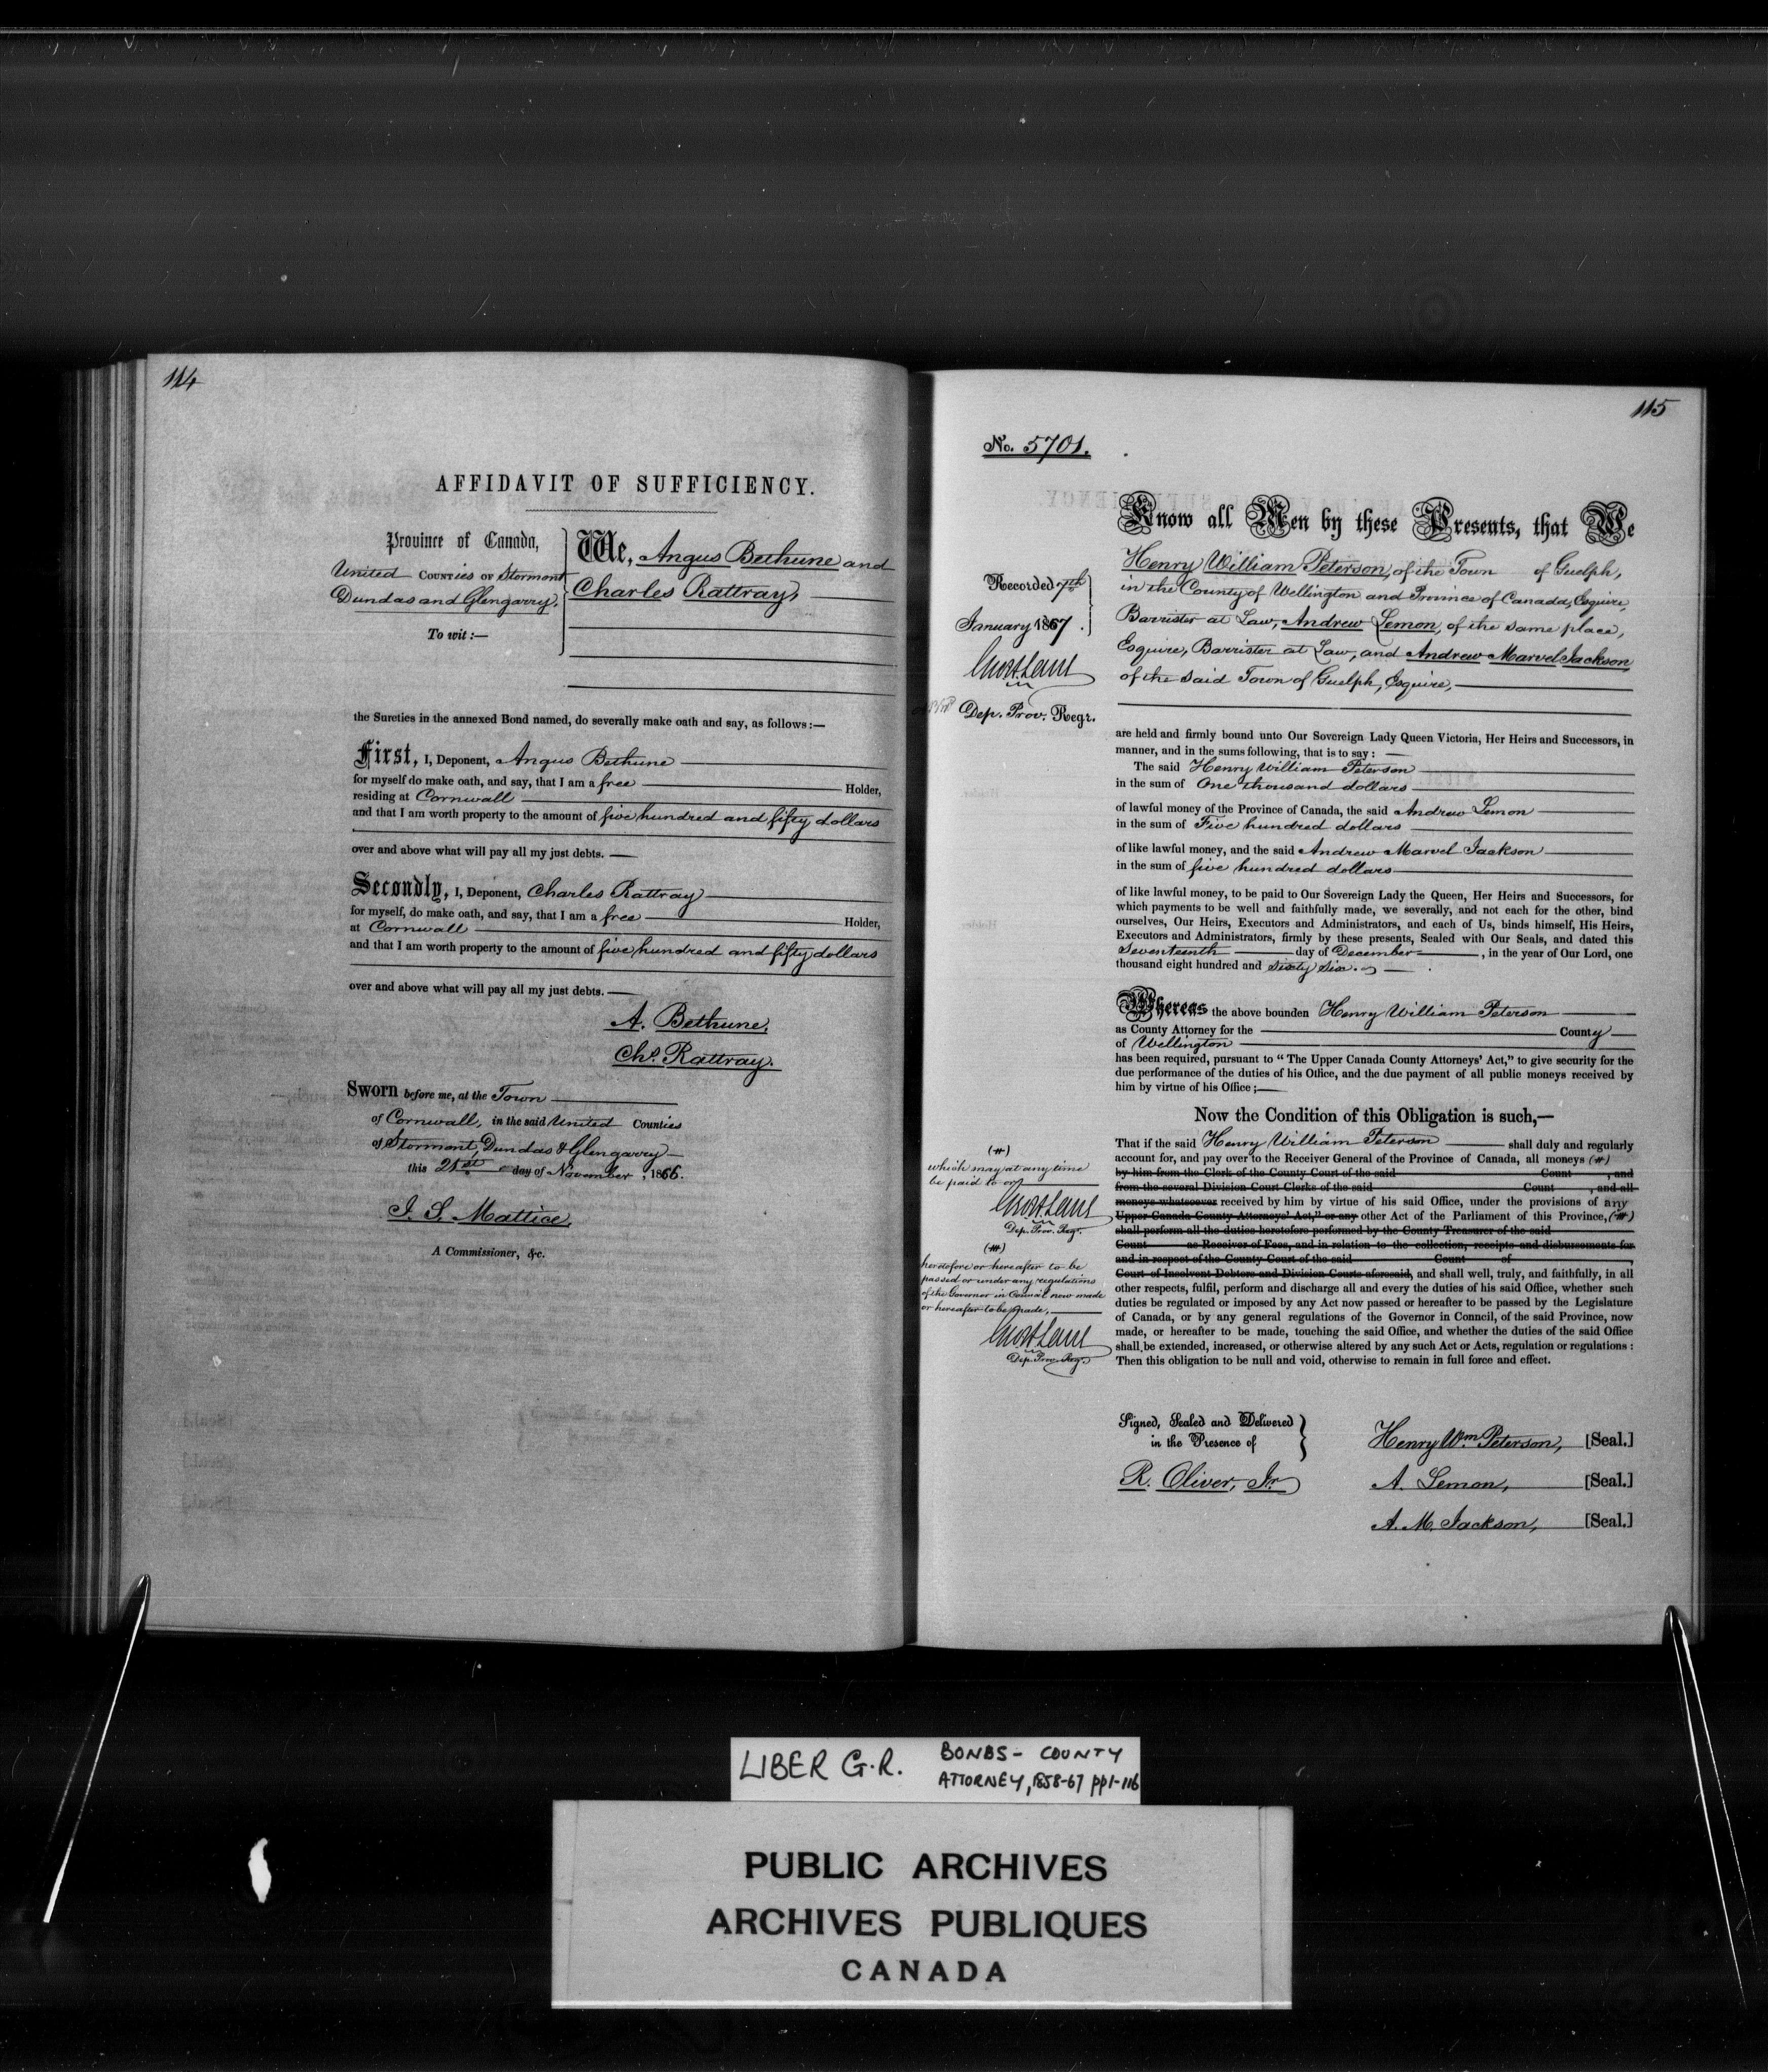 114
AFFIDAVIT OF SUFFICIENCY.
Province of Canada,
United COUNTies OF Stormont
Dundas and Glengarry.
To wit :—
We, Angus Bethune and
Charles Rattray,
the Sureties in the annexed Bond named, do severally make oath and say, as follows :—
First, I, Deponent, Angus Bethune
for myself do make oath, and say, that I am a free Holder,
residing at Cornwall
and that I am worth property to the amount of five hundred and fifty dollars
over and above what will pay all my just debts. —
Secondly, I, Deponent, Charles Rattray
for myself, do make oath, and say, that I am a free Holder,
at Cornwall
and that I am worth property to the amount of five hundred and fifty dollars
over and above what will pay all my just debts. —
A. Bethune.
Chs. Rattray.
Sworn before me, at the Town
of Cornwall, in the said United Counties
of Stormont, Dundas & Glengarry
this 21st day of November, 1866.
J. S. Mattice.
A Commissioner, &c.
115
No. 5701.
Recorded 7th
January 1867.
Dep. Prov. Regr.
Know all Men by these Presents, that We
Henry William Peterson, of the Town of Guelph,
in the County of Wellington and Province of Canada, Esquire,
Barrister at Law, Andrew Lemon, of the same place,
Esquire, Barrister at Law, and Andrew Marvel Jackson
of the said Town of Guelph, Esquire,
are held and firmly bound unto Our Sovereign Lady Queen Victoria, Her Heirs and Successors, in
manner, and in the sums following, that is to say : —
The said Henry William Peterson
in the sum of One thousand dollars
of lawful money of the Province of Canada, the said Andrew Lemon
in the sum of Five hundred dollars
of like lawful money, and the said Andrew Marvel Jackson
in the sum of five hundred dollars
of like lawful money, to be paid to Our Sovereign Lady the Queen, Her Heirs and Successors, for
which payments to be well and faithfully made, we severally, and not each for the other, bind
ourselves, Our Heirs, Executors and Administrators, and each of Us, binds himself, His Heirs,
Executors and Administrators, firmly by these presents, Sealed with Our Seals, and dated this
Seventeenth day of December, in the year of Our Lord, one
thousand eight hundred and sixty six.
Whereas the above bounden Henry William Peterson
as County Attorney for the County
of Wellington
has been required, pursuant to “ The Upper Canada County Attorneys’ Act,” to give security for the
due performance of the duties of his Office, and the due payment of all public moneys received by
him by virtue of his Office ;—
Now the Condition of this Obligation is such,—
That if the said Henry William Peterson shall duly and regularly
account for, and pay over to the Receiver General of the Province of Canada, all moneys (#)
by him from the Clerk of the County Court of the said Count , and
from the several Division Court Clerks of the said Count , and all
moneys whatsoever received by him by virtue of his said Office, under the provisions of any
Upper Canada County Attorneys’ Act,” or any other Act of the Parliament of this Province, (#)
shall perform all the duties heretofore performed by the County Treasurer of the said
Count as Receiver of Fees, and in relation to the collection, receipts and disbursements for
and in respect of the County Court of the said Count of ,
Court of Insolvent Debtors and Division Courts aforesaid, and shall well, truly, and faithfully, in all
other respects, fulfil, perform and discharge all and every the duties of his said Office, whether such
duties be regulated or imposed by any Act now passed or hereafter to be passed by the Legislature
of Canada, or by any general regulations of the Governor in Conncil, of the said Province, now
made, or hereafter to be made, touching the said Office, and whether the duties of the said Office
shall be extended, increased, or otherwise altered by any such Act or Acts, regulation or regulations :
Then this obligation to be null and void, otherwise to remain in full force and effect.
(#)
which may at any time
be paid to or
Dep. Prov. Reg.
(#)
heretofore or hereafter to be
passed or under any regulations
of the Governor in Council now made
or hereafter to be made,
Dep. Prov. Reg.
Signed, Sealed and Delivered
in the Presence of
R. Oliver, Jr.
Henry Wm. Peterson, [Seal.]
A. Lemon, [Seal.]
A. M. Jackson, [Seal.]
LIBER G.R.
BONDS - COUNTY
ATTORNEY, 1858-67 pp1-116
PUBLIC ARCHIVES
ARCHIVES PUBLIQUES
CANADA